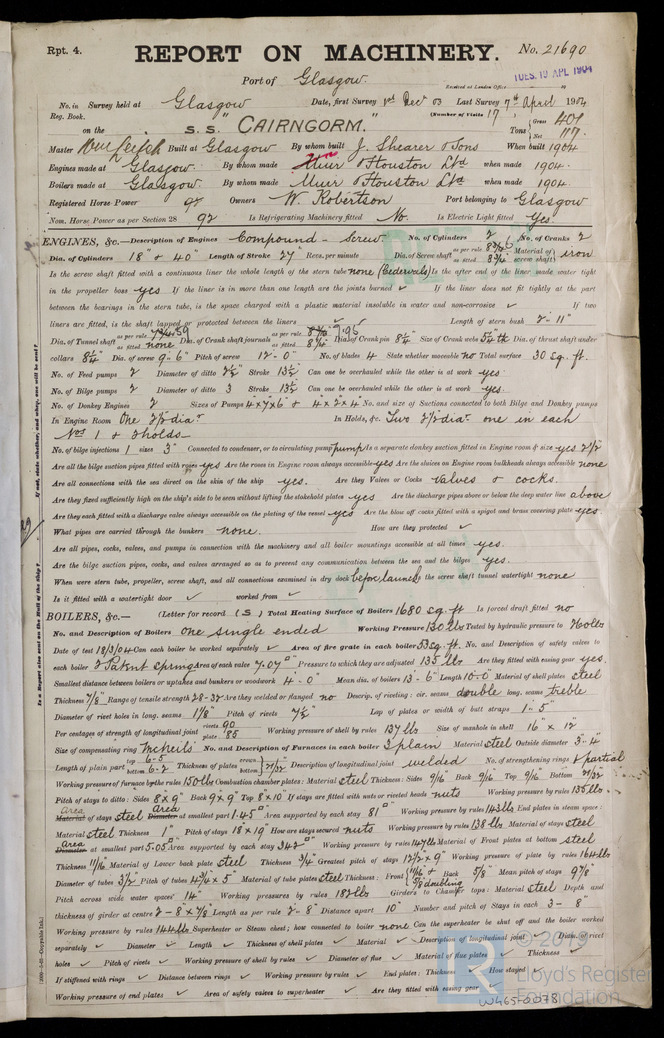 Rpt. 4.
REPORT ON MACHINERY.
No. 21690
Port of Glasgow.
Received at London Office TUES. 19 APL 1904
No. in Survey held at Glasgow Date, first Survey 1st Decr 03 Last Survey 7th April 1904
Reg. Book. (Number of Visits 17)
on the S. S. "CAIRNGORM." Tons { Gross 401
Net 117
Master Built at Glasgow By whom built J. Shearer & Sons When built 1904
Engines made at Glasgow By whom made Muir & Houston Ltd when made 1904.
Boilers made at Glasgow. By whom made Muir & Houston Ltd when made 1904.
Registered Horse Power 92 Owners W. Robertson Port belonging to Glasgow
Nom. Horse Power as per Section 28 92 Is Refrigerating Machinery fitted No. Is Electric Light fitted Yes.
ENGINES, &c.—Description of Engines Compound - Screw No. of Cylinders 2 No. of Cranks 2
Dia. of Cylinders 18" & 40" Length of Stroke 27" Revs. per minute Dia. of Screw shaft as per rule as fitted Material of screw shaft } iron
Is the screw shaft fitted with a continuous liner the whole length of the stern tube none (Cedervals) Is the after end of the liner made water tight
in the propeller boss yes If the liner is in more than one length are the joints burned ✓ If the liner does not fit tightly at the part
between the bearings in the stern tube, is the space charged with a plastic material insoluble in water and non-corrosive ✓ If two
liners are fitted, is the shaft lapped or protected between the liners ✓ Length of stern bush 2-11"
Dia. of Tunnel shaft as per rule as fitted none Dia. of Crank shaft journals as per rule as fitted Dia. of Crank pin 8¼" Size of Crank webs Dia. of thrust shaft under
collars 8¼" Dia. of screw 9-6" Pitch of screw 12'-0" No. of blades 4 State whether moveable no Total surface 30 sq. ft.
No. of Feed pumps 2 Diameter of ditto 2½" Stroke 13½" Can one be overhauled while the other is at work yes.
No. of Bilge pumps 2 Diameter of ditto 3 Stroke 13½" Can one be overhauled while the other is at work yes.
No. of Donkey Engines 2 Sizes of Pumps 4"x7"x6" & 4"x2"x4" No. and size of Suctions connected to both Bilge and Donkey pumps
In Engine Room One 2½" diar In Holds, &c. Two 2½" diar. one in each
Nos 1 & 2 holds—
No. of bilge injections 1 sizes 3" Connected to condenser, or to circulating pump pump Is a separate donkey suction fitted in Engine room & size yes 2½"
Are all the bilge suction pipes fitted with roses yes Are the roses in Engine room always accessible yes Are the sluices on Engine room bulkheads always accessible none
Are all connections with the sea direct on the skin of the ship yes. Are they Valves or Cocks valves & cocks.
Are they fixed sufficiently high on the ship's side to be seen without lifting the stokehold plates yes Are the discharge pipes above or below the deep water line above
Are they each fitted with a discharge valve always accessible on the plating of the vessel yes Are the blow off cocks fitted with a spigot and brass covering plate yes
What pipes are carried through the bunkers none. How are they protected ✓
Are all pipes, cocks, valves, and pumps in connection with the machinery and all boiler mountings accessible at all times yes.
Are the bilge suction pipes, cocks, and valves arranged so as to prevent any communication between the sea and the bilges yes.
When were stern tube, propeller, screw shaft, and all connections examined in dry dock before launch Is the screw shaft tunnel watertight none
Is it fitted with a watertight door ✓ worked from ✓
BOILERS, &c.— (Letter for record (S) Total Heating Surface of Boilers 1680 sq. ft Is forced draft fitted no
No. and Description of Boilers One single ended Working Pressure 130 lbs Tested by hydraulic pressure to 260 lbs
Date of test 18/3/04 Can each boiler be worked separately ✓ Area of fire grate in each boiler 53 sq. ft. No. and Description of safety valves to
each boiler 2 Patent spring Area of each valve 7.07□" Pressure to which they are adjusted 135 lbs Are they fitted with easing gear yes.
Smallest distance between boilers or uptakes and bunkers or woodwork 4'-0" Mean dia. of boilers 13-6" Length 10-0 Material of shell plates steel
Thickness 7/8" Range of tensile strength 28-32 Are they welded or flanged no Descrip. of riveting: cir. seams double long. seams treble
Diameter of rivet holes in long. seams 1 1/8" Pitch of rivets 7½" Lap of plates or width of butt straps 1-5"
Per centages of strength of longitudinal joint rivets 90 plate 85 Working pressure of shell by rules 137 lbs Size of manhole in shell 16" x 12"
Size of compensating ring McNeils' No. and Description of Furnaces in each boiler 3 plain Material steel Outside diameter 3-4"
Length of plain part top 6-5 bottom 6-2 Thickness of plates crown bottom } 21/32" Description of longitudinal joint welded No. of strengthening rings partial
Working pressure of furnace by the rules 150 lbs Combustion chamber plates: Material steel Thickness: Sides 9/16" Back 9/16 Top 9/16 Bottom 21/32
Pitch of stays to ditto: Sides 8"x9" Back 9"x9" Top 8"x10" If stays are fitted with nuts or riveted heads nuts Working pressure by rules 135 lbs.
Material of stays steel Area at smallest part 1.45□" Area supported by each stay 81□" Working pressure by rules 143 lbs End plates in steam space:
Material steel Thickness 1" Pitch of stays 18"x19" How are stays secured nuts Working pressure by rules 138 lbs Material of stays steel
Area at smallest part 5.05□" Area supported by each stay 342□" Working pressure by rules 147 lbs Material of Front plates at bottom steel
Thickness 11/16" Material of Lower back plate steel Thickness 3/4" Greatest pitch of stays 12½"x9" Working pressure of plate by rules 164 lbs
Diameter of tubes 3½" Pitch of tubes 4¾"x5" Material of tube plates steel Thickness: Front 11/16" & 5/8 doubling Back 5/8" Mean pitch of stays 9 7/8"
Pitch across wide water spaces 14" Working pressures by rules 182 lbs Girders to Chamber tops: Material steel Depth and
thickness of girder at centre 2-8 x 7/8" Length as per rule 2-8" Distance apart 10" Number and pitch of Stays in each 3-8"
Working pressure by rules 144 lbs Superheater or Steam chest; how connected to boiler none Can the superheater be shut off and the boiler worked
separately ✓ Diameter ✓ Length ✓ Thickness of shell plates ✓ Material ✓ Description of longitudinal joint ✓ Diam. of rivet
holes ✓ Pitch of rivets ✓ Working pressure of shell by rules ✓ Diameter of flue ✓ Material of flue plates ✓ Thickness ✓
If stiffened with rings ✓ Distance between rings ✓ Working pressure by rules ✓ End plates: Thickness ✓ How stayed ✓
Working pressure of end plates ✓ Area of safety valves to superheater ✓ Are they fitted with easing gear ✓
W465-0078
© 2019
Lloyd's Register
Foundation
Is a Report also sent on the Hull of the Ship?
If not, state whether, and when, one will be sent?